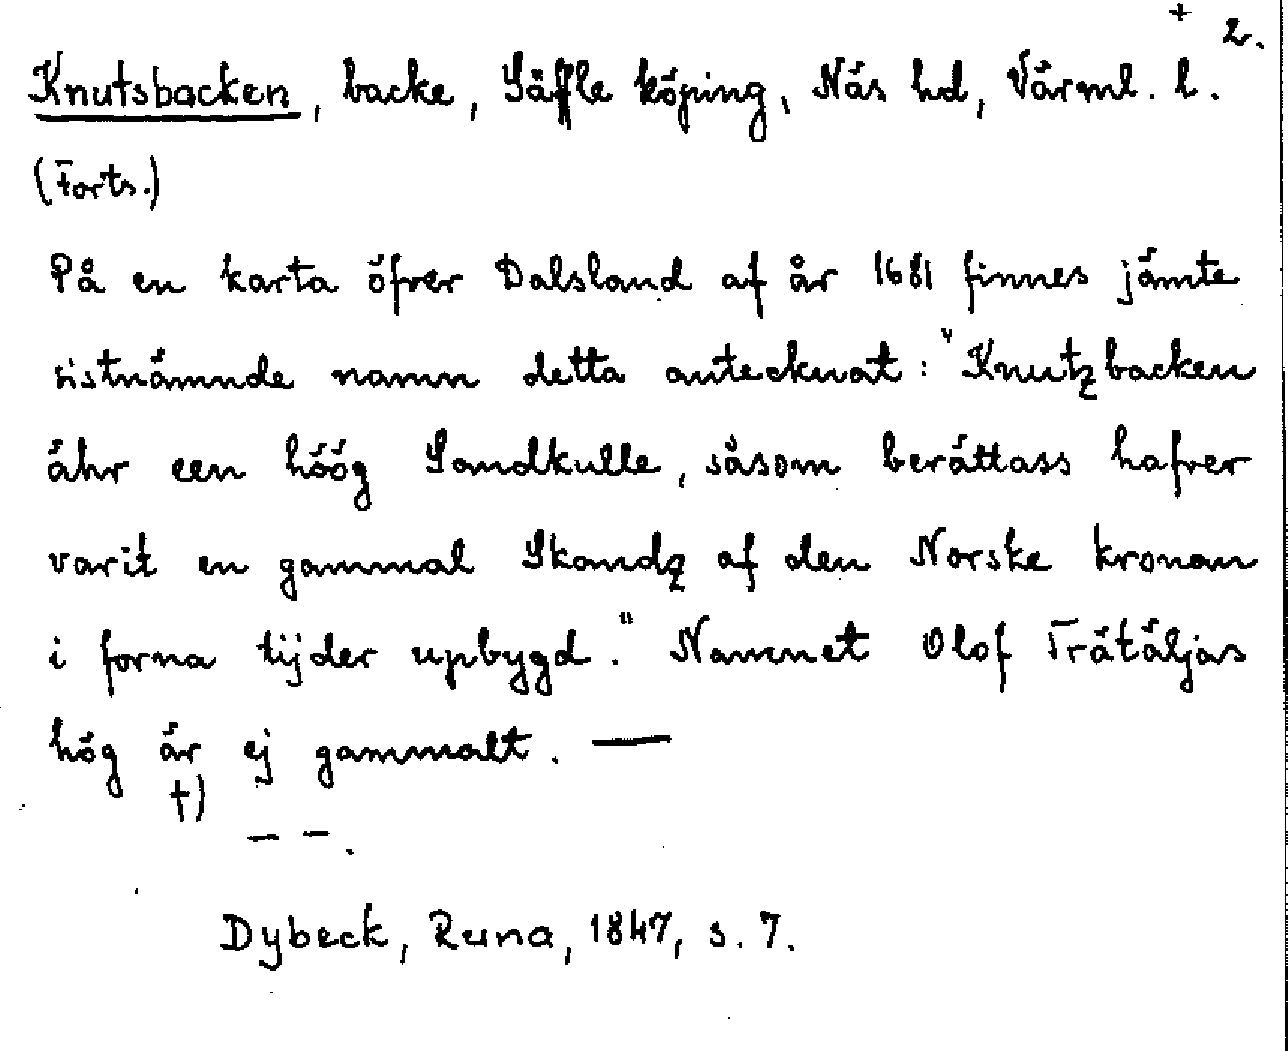 + 2.
Knutsbacken, backe, Säffle köping, Näs hd, Värml. l.
(Forts.)
På en karta öfver Dalsland af år 1681 finnes jämte
sistnämnde namn detta antecknat: "Knutzbacken
ähr een höög Sandkulle, såsom berättass hafver
varit en gammal Skandz af den Norske kronan
i forna tijder upbygd." Namnet Olof Trätäljas
hög är ej gammalt. —
†)
— —.
Dybeck, Runa, 1847, s. 7.